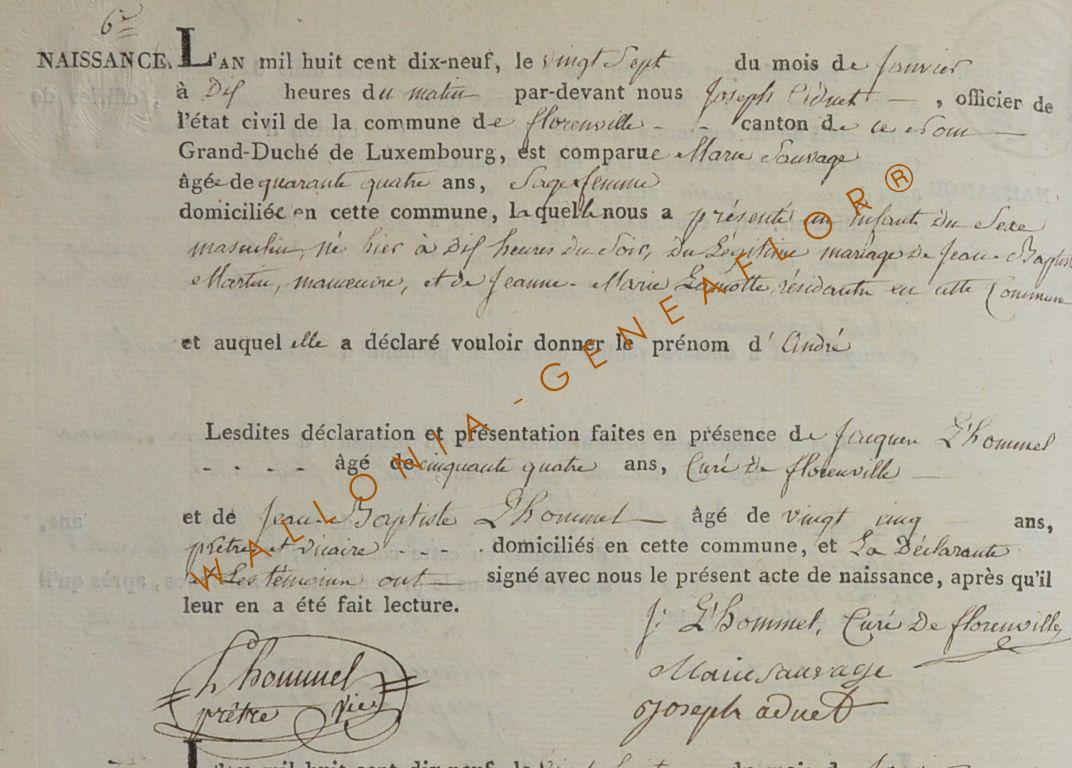 6e
NAISSANCE. L'AN mil huit cent dix-neuf, le vingt Sept du mois de Janvier
à Dix heures du matin par-devant nous Joseph Adnet - , officier de
l'état civil de la commune de florenville - - canton de ce nom
Grand-Duché de Luxembourg, est comparue Marie Sauvage
âgée de quarante quatre ans, Sage femme
domiciliée en cette commune, laquelle nous a présenté un Enfant du Sexe
masculin, né hier à Dix heures du Soir, Du Légitime mariage de Jean-Baptiste
Martin, manœuvre, et de Jeanne-Marie Lamotte, résidants en cette Commune
et auquel elle a déclaré vouloir donner le prénom d' André
Lesdites déclaration et présentation faites en présence de Jacques L'hommel
- - - - âgé de cinquante quatre ans, Curé De florenville -
et de Jean-Baptiste L'hommel - âgé de vingt cinq ans,
prêtre et vicaire - - - . domiciliés en cette commune, et La Déclarante
et Les témoins ont signé avec nous le présent acte de naissance, après qu'il
leur en a été fait lecture.
J: L'hommel, Curé De florenville
L'hommel
prêtre vic
Marie Sauvage
Joseph adnet
WALLONIA-GENEAFLOR®
L'an mil huit cent dix-neuf, le vingt Huit du mois de Janvier